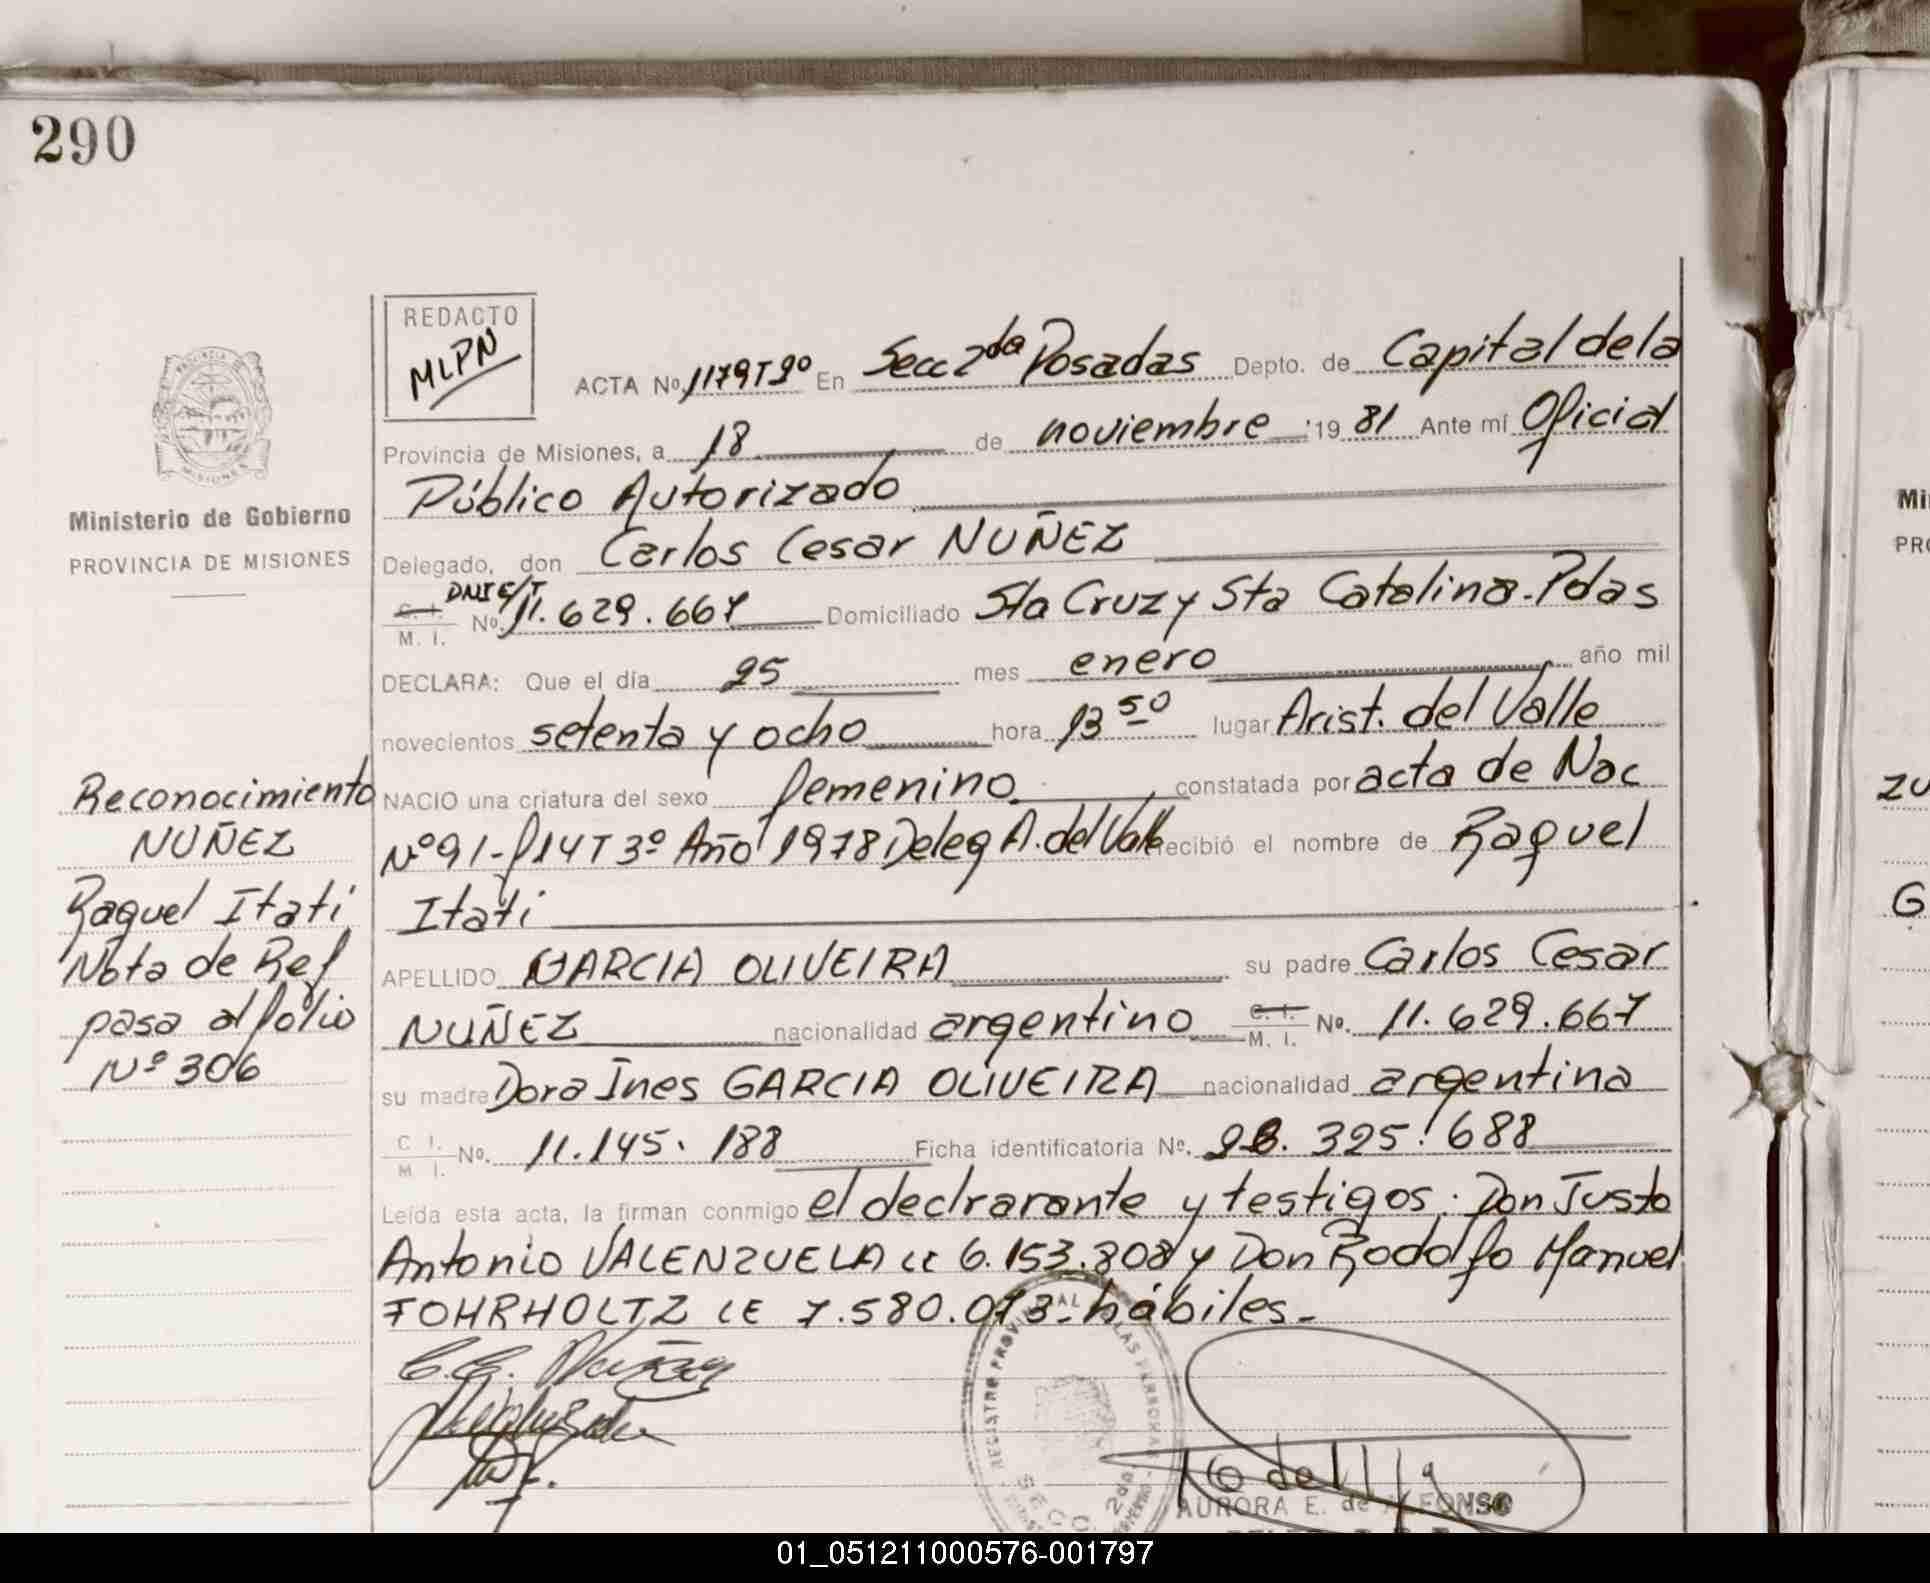 290
REDACTO
MLPN
ACTA No. 1179 T 9º En Secc 2da Posadas Depto. de Capital de la
Provincia de Misiones, a 18 de noviembre 19 81 Ante mí Oficial
Público Autorizado
Delegado, don Carlos Cesar NUÑEZ
DNI E/T
C. I. M. I. No. 11.629.667 Domiciliado Sta Cruz y Sta Catalina. Pdas
DECLARA: Que el día 25 mes enero año mil
novecientos setenta y ocho hora 13 50 lugar Arist. del Valle
NACIO una criatura del sexo femenino constatada por acta de Nac
Nº 91 - f 14 T 3º Año 1978 Deleg A. del Valle recibió el nombre de Raquel
Itati
APELLIDO GARCIA OLIVEIRA su padre Carlos Cesar
NUÑEZ nacionalidad argentino C. I. M. I. No. 11.629.667
su madre Dora Ines GARCIA OLIVEIRA nacionalidad argentina
C I. M I. No. 11.145.188 Ficha identificatoria No. 26.325.688
Leída esta acta, la firman conmigo el declrarante y testigos: Don Justo
Antonio VALENZUELA LE 6.153.808 y Don Rodolfo Manuel
FOHRHOLTZ LE 7.580.073 - hábiles.-
C.C. Nuñez
PROVINCIA DE
MISIONES
Ministerio de Gobierno
PROVINCIA DE MISIONES
Reconocimiento
NUÑEZ
Raquel Itati
Nota de Ref
pasa al folio
Nº 306
REGISTRO PROVINCIAL DE LAS PERSONAS
SECC. 2da
AURORA E. de ALFONSO
Mi
PRO
ZU
G
01_051211000576-001797